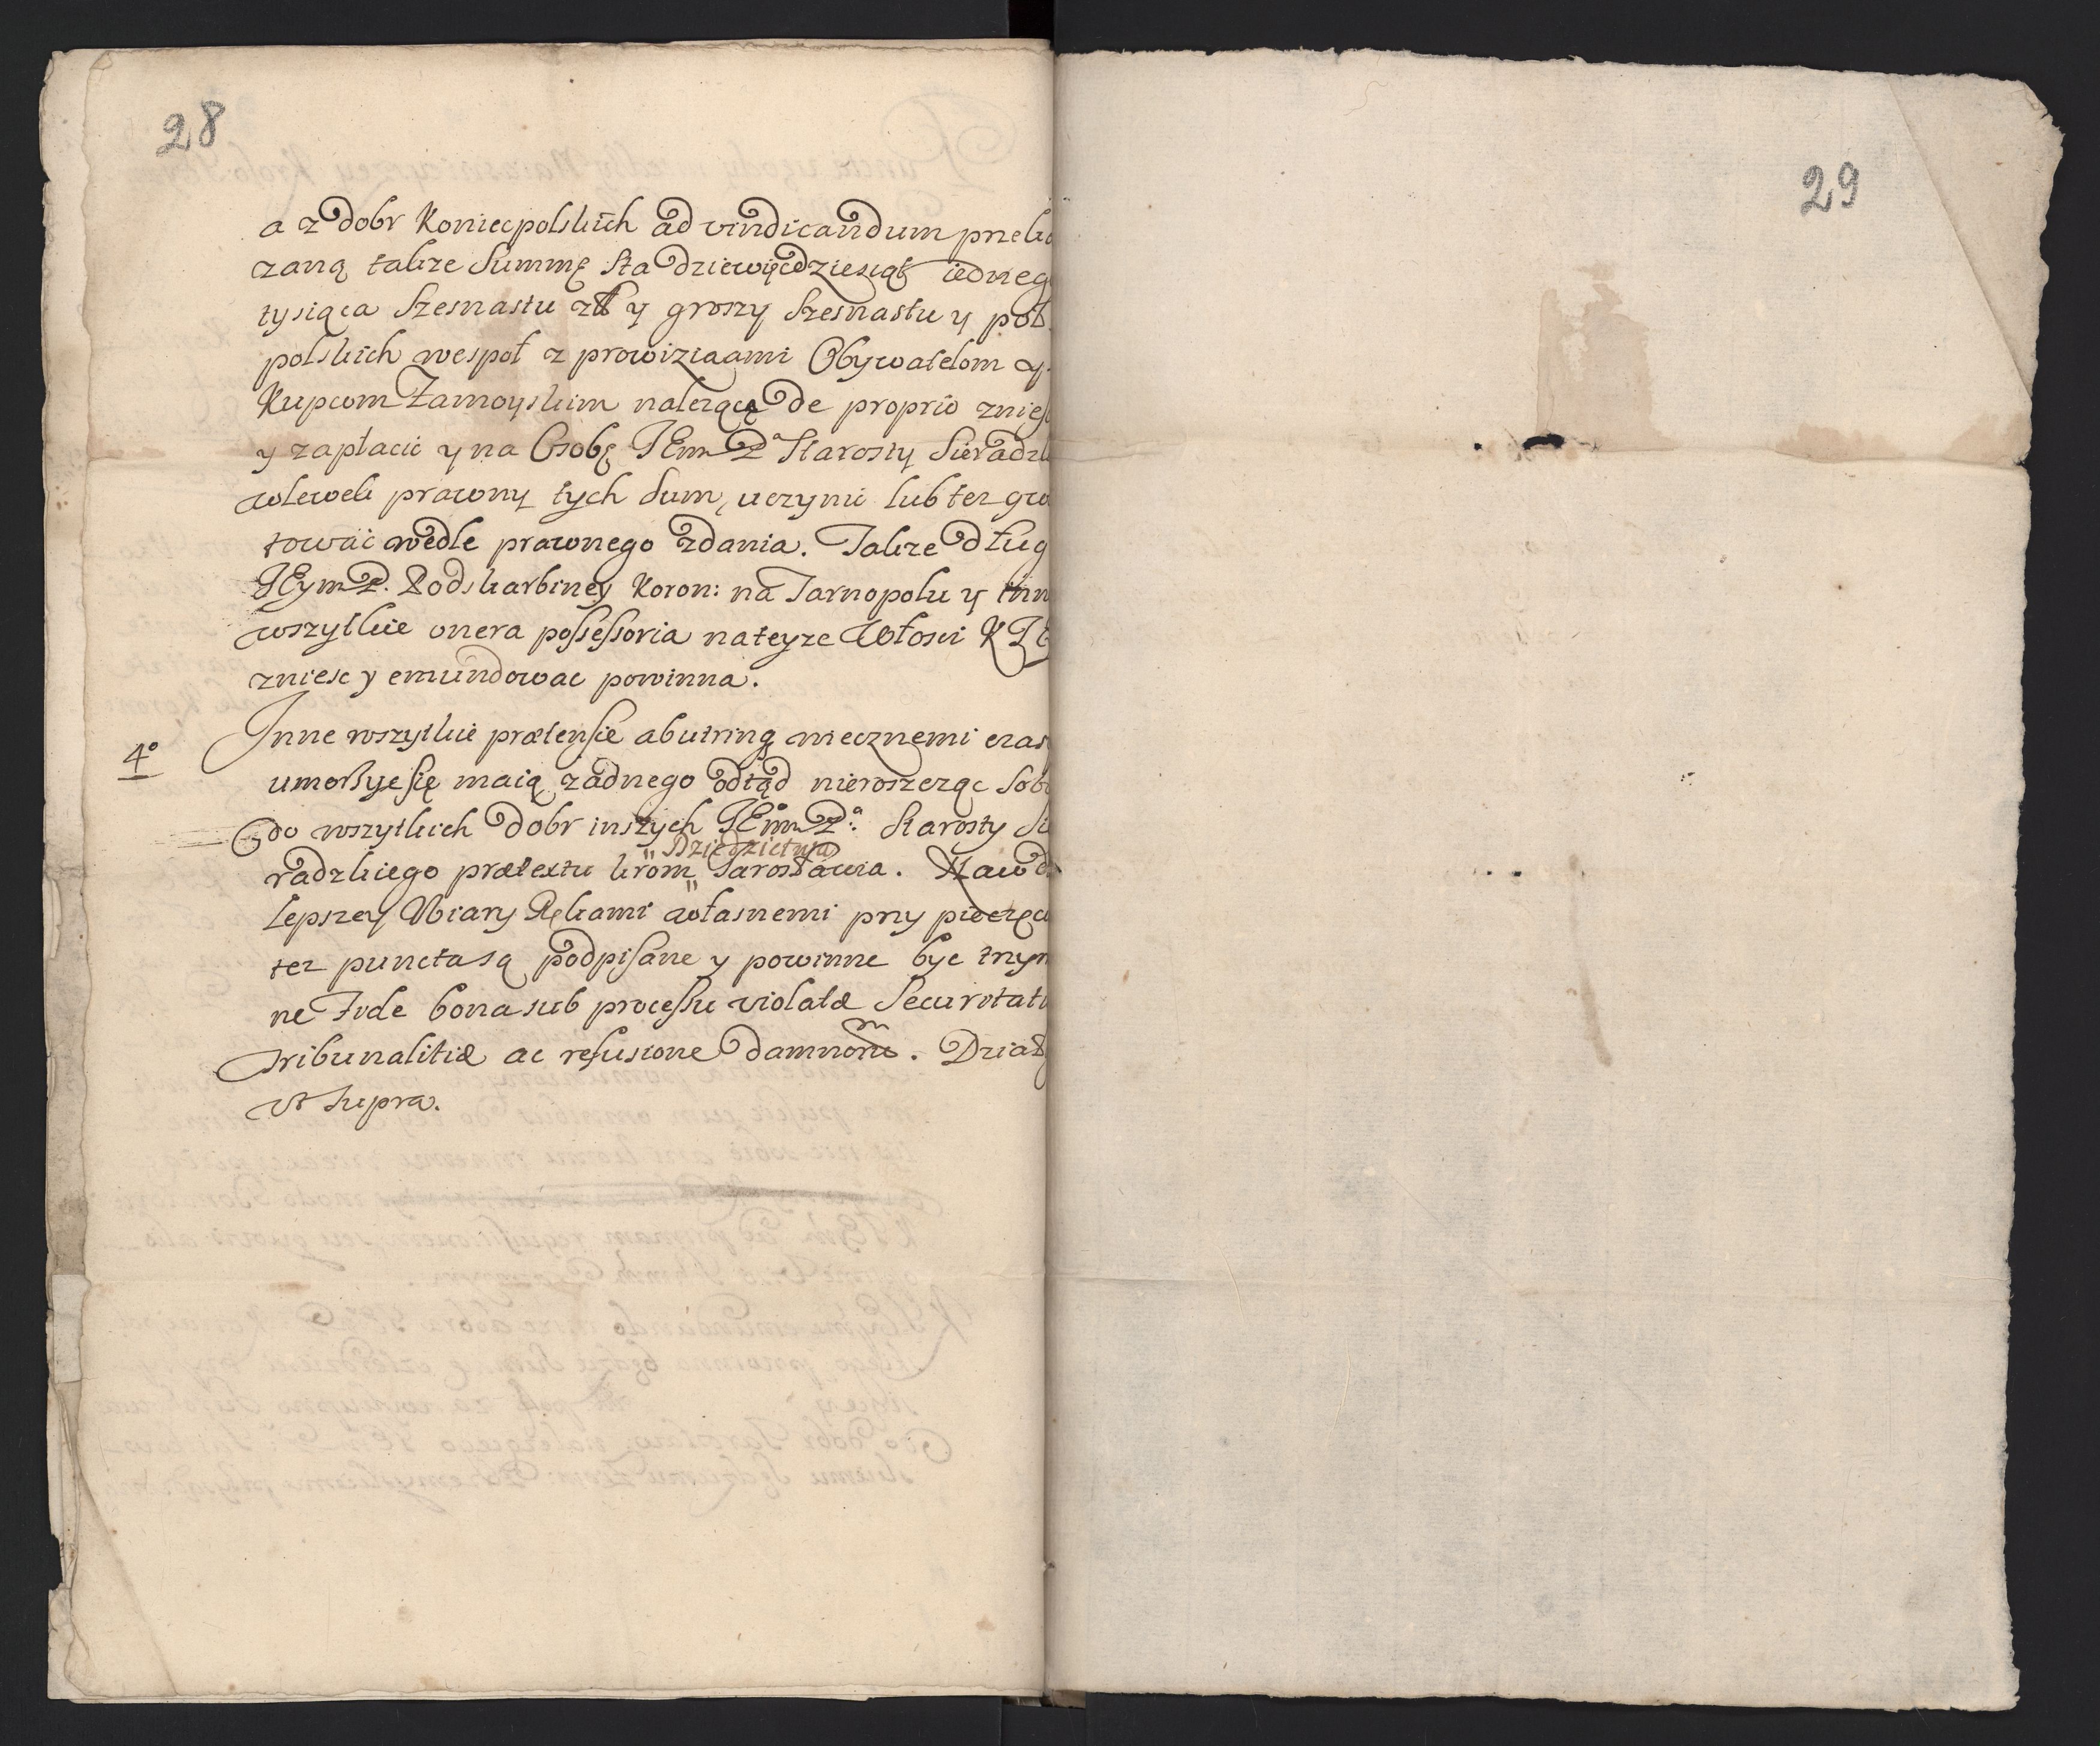 28
a z dobr Koniecpolskich ad vindicandum przeka
zaną takze Summę Sta dziewięcdziesiąt iednego
tysiąca Szesnastu zł y groszy Szesnastu y poł
polskich wespoł z prowiziaami Obywatelom y
Kupcom Zamoyskim nalezącą de proprio znieść
y zapłacić y na Osobę JEm Pa Starosty Sieradzk
wlewek prawny tych Sum, uczynić lub tez
tować wedle prawnego zdania. Takze dług
JEym P. Podskarbiney Koron: na Tarnopolu y inn
wszytkie onera possessoria na teyze Włosci K J
zniesc y emundowac powinna.
4o
Inne wszytkie prætensie ab utrinq wiecznemi czasy
umorzyc się maią zadnego odtąd nieroszcząc Sobie
do wszytkich dobr inszych JEm Pa: Starosty Sie
Dziedzictwa
radzkiego prætextu krom Jarosławia. Naco dla
lepszey Wiary Rękami własnemi przy pieczęci
tez puncta są podpisane y powinne byc trzym
ne fide bona sub processu violatæ Securitatis
tribunalitiæ ac refusione damnoru m. Działo
vt Supra.
29